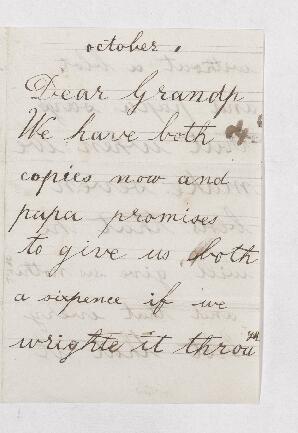 october.
Dear Grandp
We have both
copies now and
papa promises
to give us both
a sixpence if we
wrighte it throu